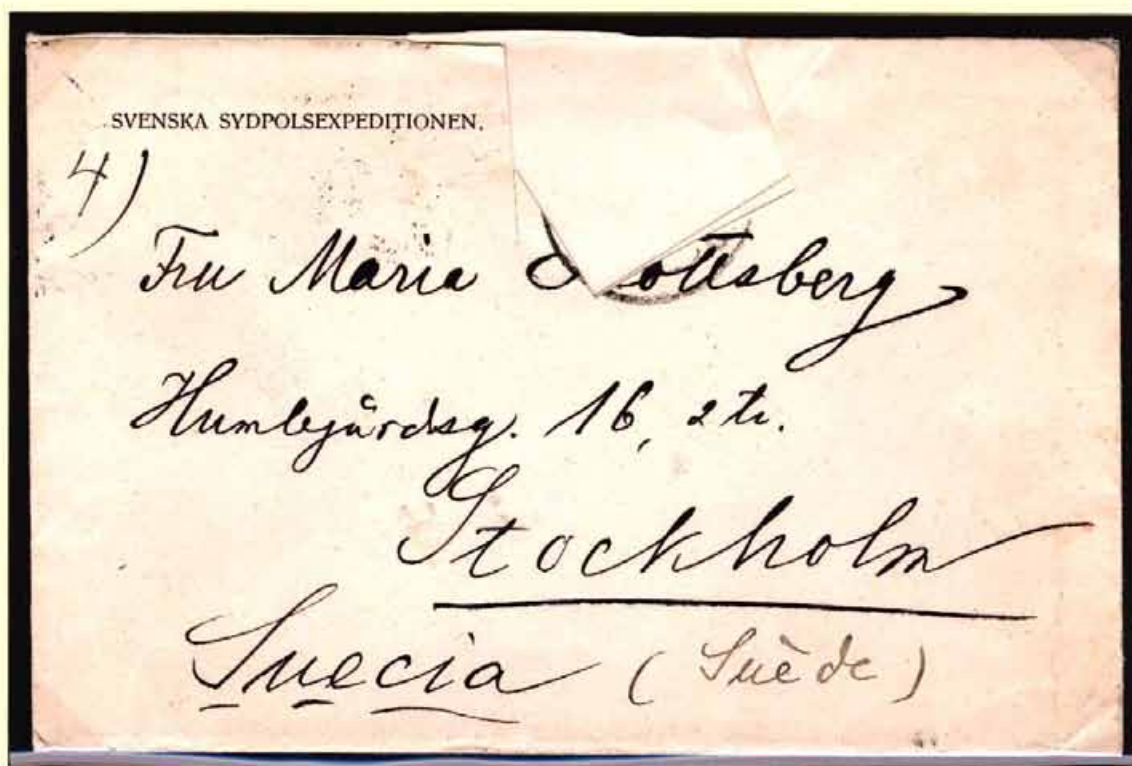 SVENSKA SYDPOLSEXPEDITIONEN.
4)
Fru Maria
Humlegårdsg. 16, 2 tr.
Stockholm
Suecia (Suède)